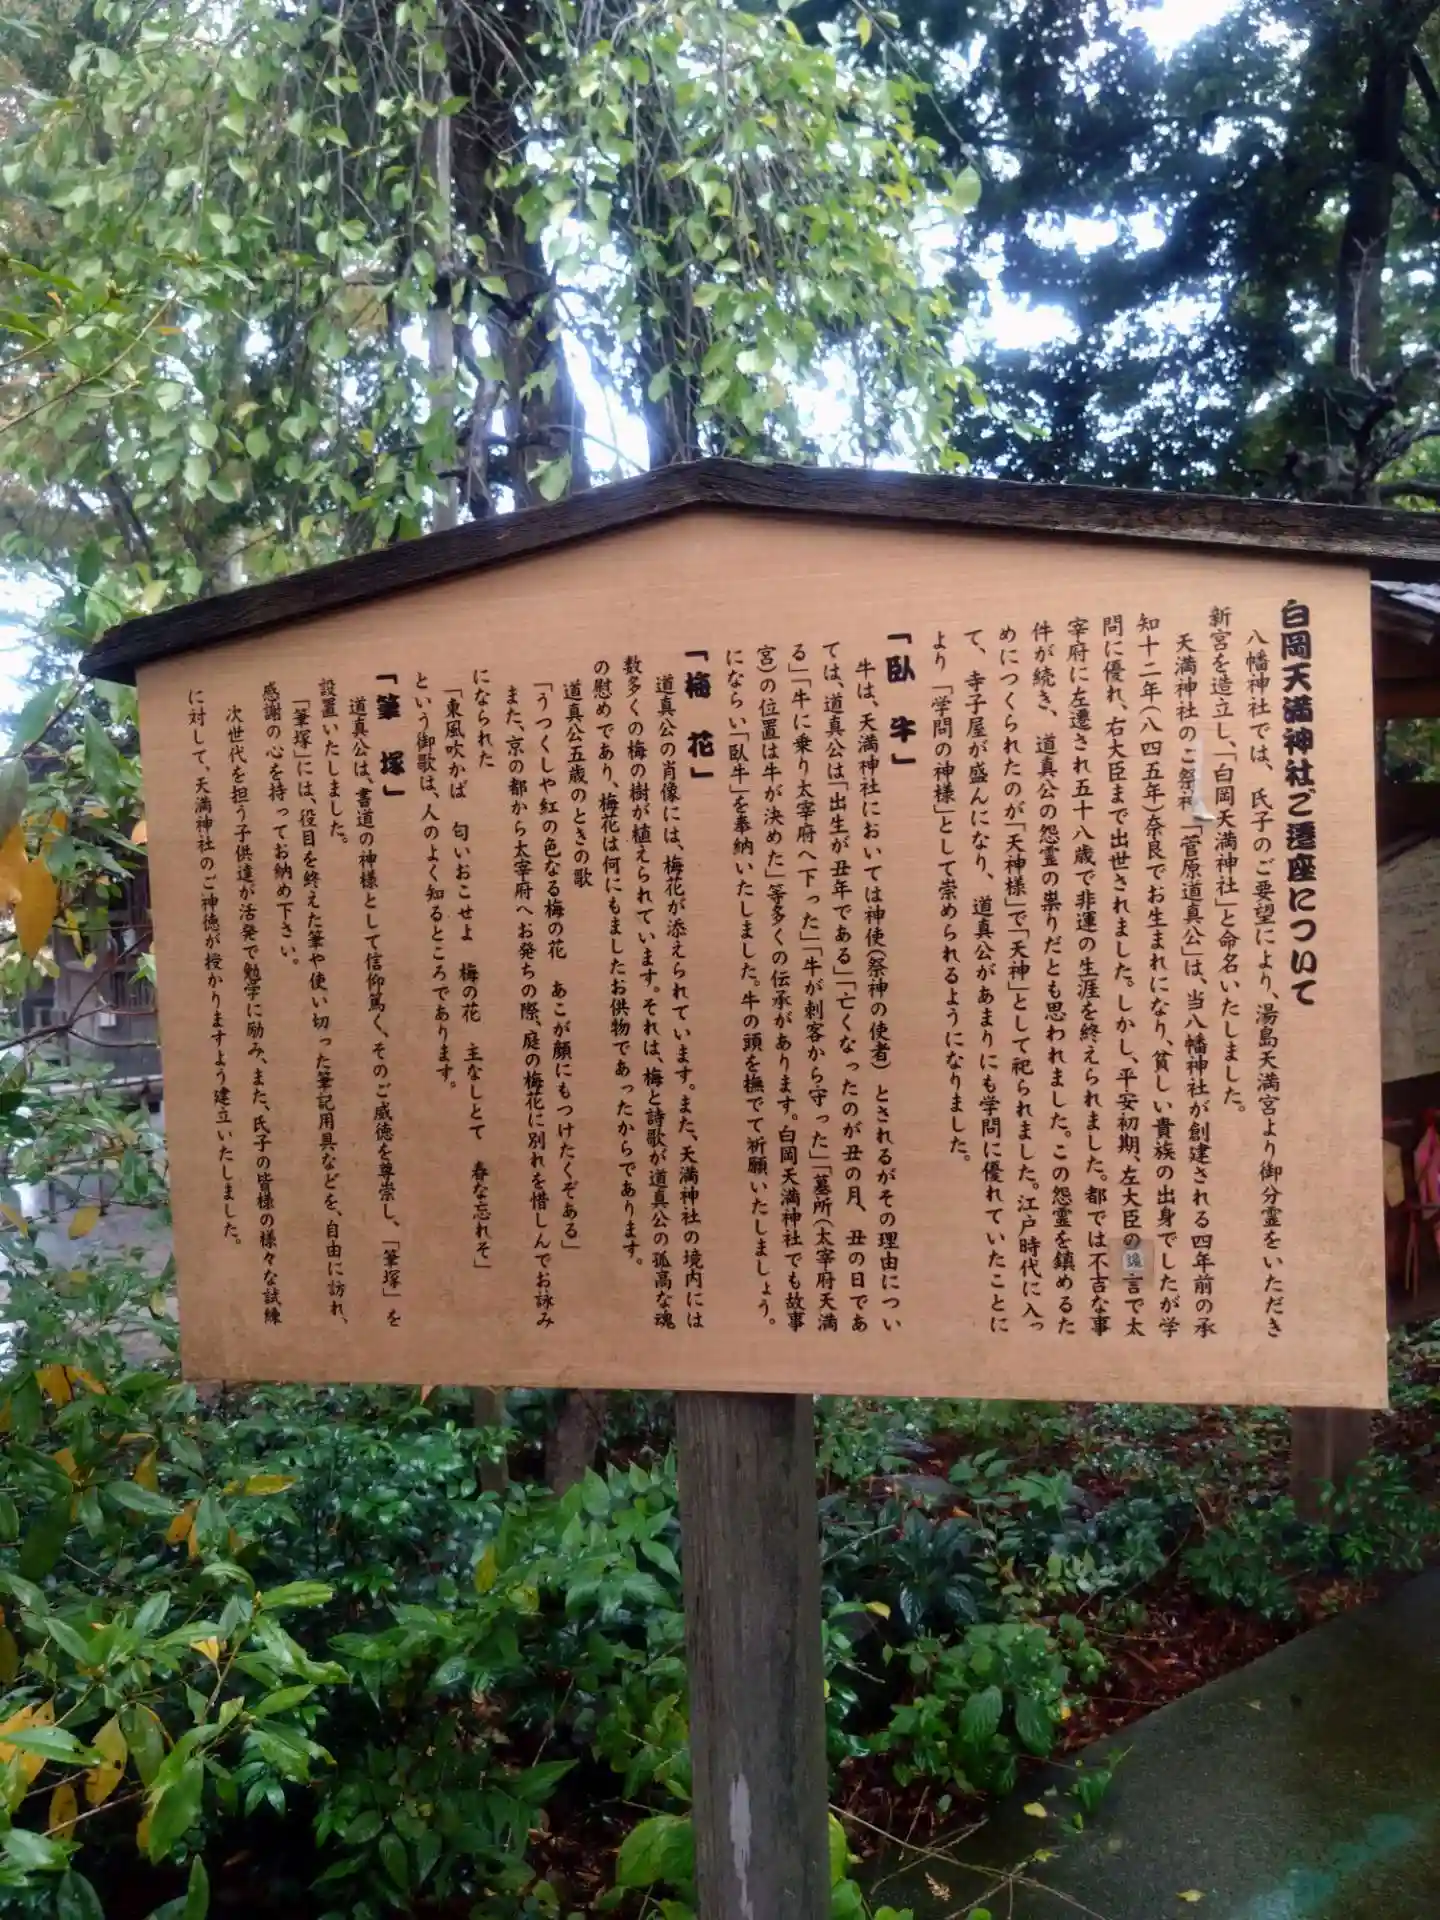 白岡天満神社ご遷座について
八幡神社では、氏子のご要望により、湯島天満宮より御分霊をいただき
新宮を造立し、「白岡天満神社」と命名いたしました。
天満神社のご祭神「菅原道真公」は、当八幡神社が創建される四年前の承
知十二年(八四五年)奈良でお生まれになり、貧しい貴族の出身でしたが学
問に優れ、右大臣まで出世されました。しかし、平安初期、左大臣の讒言で太
宰府に左遷され五十八歳で非運の生涯を終えられました。都では不吉な事
件が続き、道真公の怨霊の祟りだとも思われました。この怨霊を鎮めるた
めにつくられたのが「天神様」で「天神」として祀られました。江戸時代に入っ
て、寺子屋が盛んになり、道真公があまりにも学問に優れていたことに
より「学問の神様」として崇められるようになりました。
「臥牛」
牛は、天満神社においては神使(祭神の使者)とされるがその理由につい
ては、道真公は「出生が丑年である」「亡くなったのが丑の月、丑の日であ
る」「牛に乗り太宰府へ下った」「牛が刺客から守った」「墓所(太宰府天満
宮)の位置は牛が決めた」等多くの伝承があります。白岡天満神社でも故事
にならい「臥牛」を奉納いたしました。牛の頭を撫でて祈願いたしましょう。
「梅花」
道真公の肖像には、梅花が添えられています。また、天満神社の境内には
数多くの梅の樹が植えられています。それは、梅と詩歌が道真公の孤高な魂
の慰めであり、梅花は何にもましたお供物であったからであります。
道真公五歳のときの歌
「うつくしや紅の色なる梅の花 あこが顔にもつけたくぞある」
また、京の都から太宰府へお発ちの際、庭の梅花に別れを惜しんでお詠み
になられた
「東風吹かば 匂いおこせよ 梅の花 主なしとて 春な忘れそ」
という御歌は、人のよく知るところであります。
「筆塚」
道真公は、書道の神様として信仰篤く、そのご威徳を尊崇し、「筆塚」を
設置いたしました。
「筆塚」には、役目を終えた筆や使い切った筆記用具などを、自由に訪れ、
感謝の心を持ってお納め下さい。
次世代を担う子供達が活発で勉学に励み、また、氏子の皆様の様々な試練
に対して、天満神社のご神徳が授かりますよう建立いたしました。